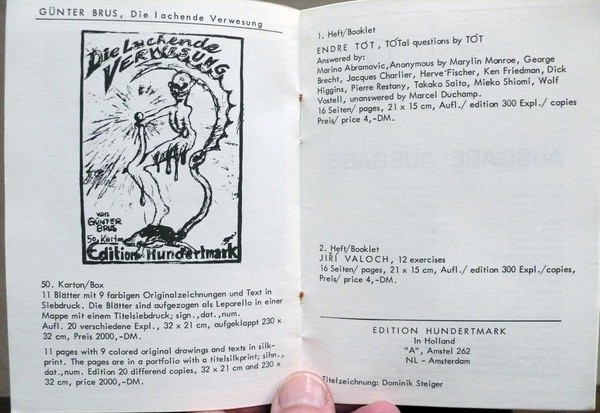 GÜNTER BRUS, Die lachende Verwesung
Die Lachende
VERWESUNG
von
GÜNTER
BRUS
50. Karton
Edition Hundertmark
50. Karton/Box
11 Blätter mit 9 farbigen Originalzeichnungen und Text in
Siebdruck. Die Blätter sind aufgezogen als Leporello in einer
Mappe mit einem Titelsiebdruck; sign.,dat.,num.
Aufl. 20 verschiedene Expl., 32 x 21 cm, aufgeklappt 230 x
32 cm, Preis 2000,-DM.
11 pages with 9 colored original drawings and texts in silk-
print. The pages are in a portfolio with a titelsilkprint; sihn.,
dat.,num. Edition 20 differend copies, 32 x 21 cm and 230 x
32 cm, price 2000,-DM.
1. Heft/Booklet
ENDRE TÓT, TÓTal questions by TÓT
Answered by:
Marina Abramovic,Anonymous by Marylin Monroe, George
Brecht, Jacques Charlier, Herve' Fischer, Ken Friedman, Dick
Higgins, Pierre Restany, Takako Saito, Mieko Shiomi, Wolf
Vostell, unanswered by Marcel Duchamp.
16 Seiten/ pages, 21 x 15 cm, Aufl./ edition 300 Expl./ copies
Preis/ price 4,-DM.
2. Heft/Booklet
JIRI VALOCH, 12 exercises
16 Seiten/ pages, 21 x 15 cm, Aufl./ edition 300 Expl./copies,
Preis/ price 4,-DM.
EDITION HUNDERTMARK
In Holland
"A", Amstel 262
NL - Amsterdam
Titelzeichnung: Dominik Steiger